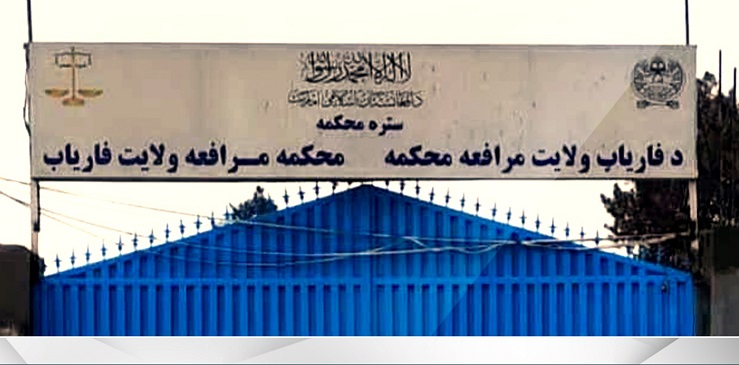 لا اله الا الله محمد رسول الله
د افغانستان اسلامي امارت
ستره محکمه
د فاریاب ولایت مرافعه محکمه محکمه مرافعه ولایت فاریاب